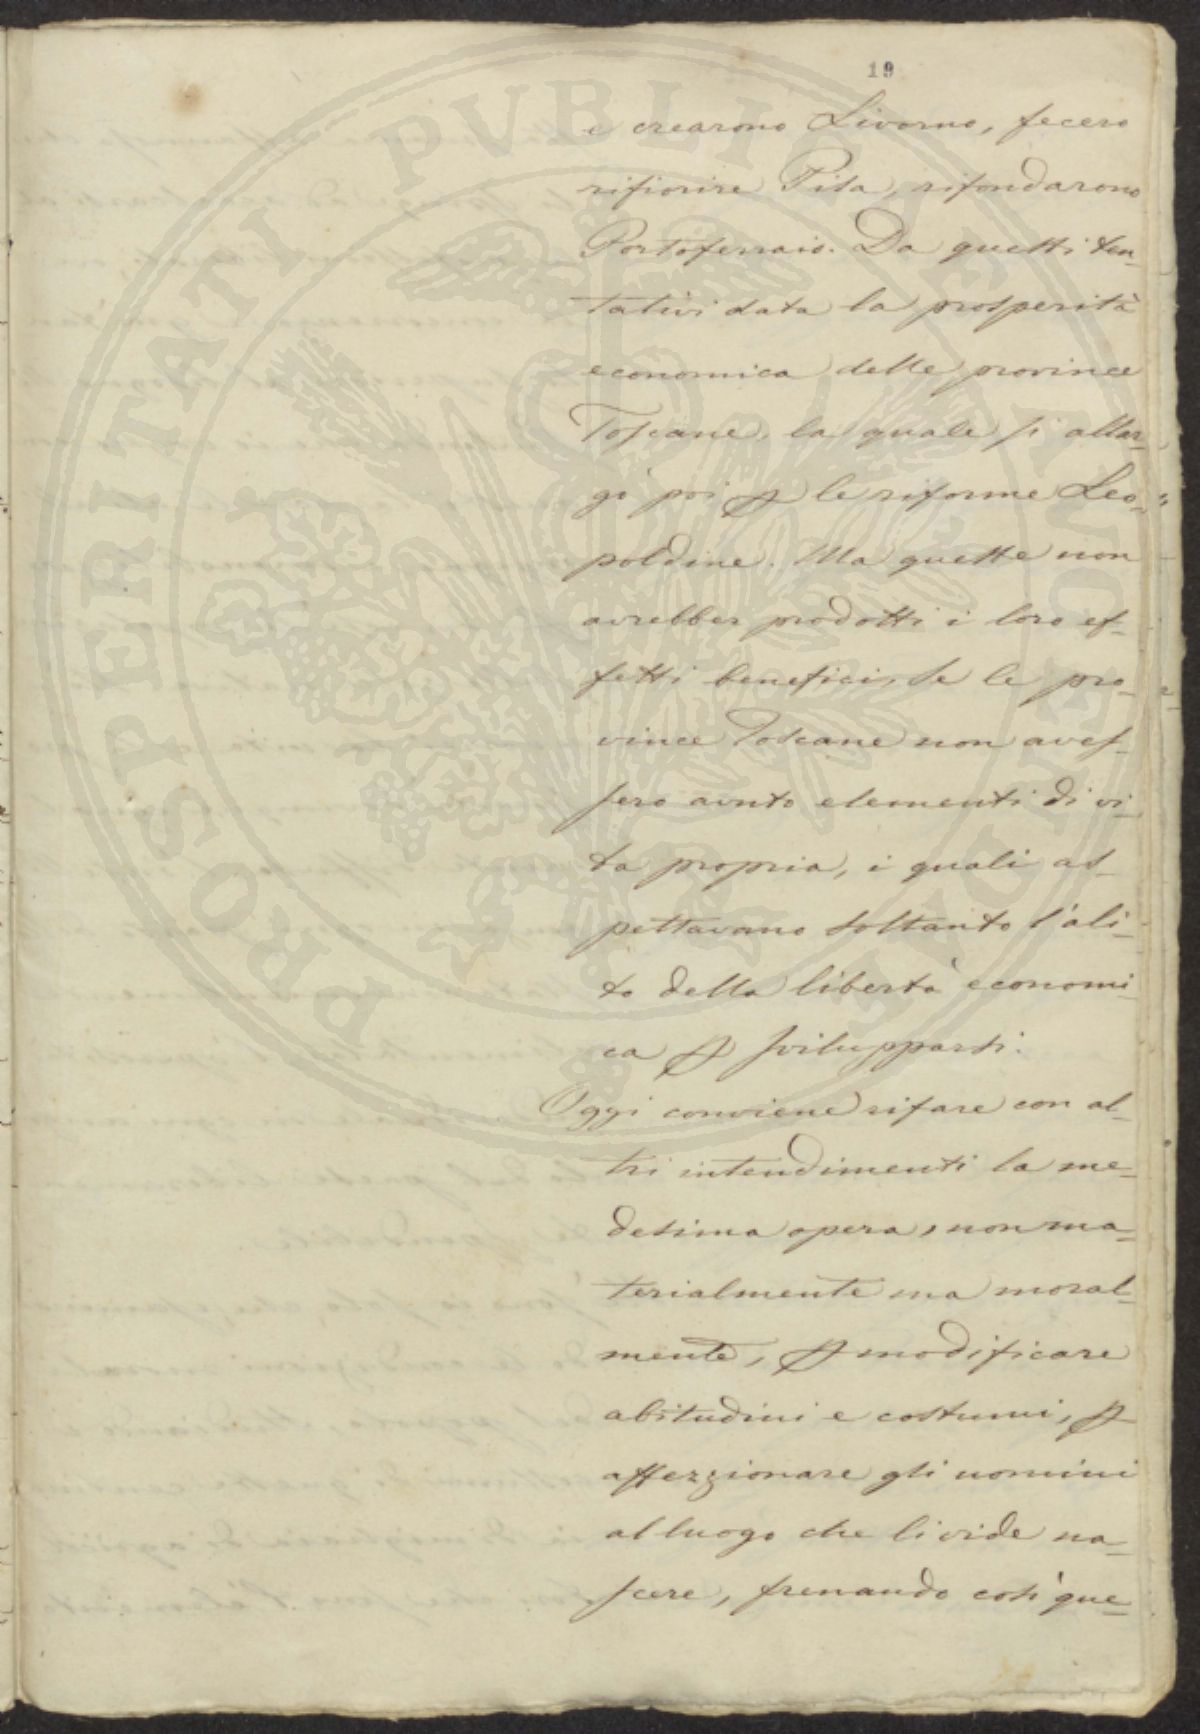 19
e crearono Livorno, fecero
rifiorire Pisa, rifondarono
Portoferraio. Da questi ten-
tativi data la prosperità
economica delle province
Toscane, la quale si allar-
gò poi p le riforme Leo-
poldine. Ma queste non
avrebber prodotti i loro ef-
fetti benefici, se le pro-
vince Toscane non aves-
sero avuto elementi di vi-
ta propria, i quali as-
pettavano soltanto l'ali-
to della libertà economi-
ca p svilupparsi.
Oggi conviene rifare con al-
tri intendimenti la me-
desima opera, non ma-
terialmente ma moral-
mente, p modificare
abitudini e costumi, p
affezzionare gli uomini
al luogo che li vide na-
scere, frenando così que-
PROSPERITATI PVBLICAE AVGENDAE